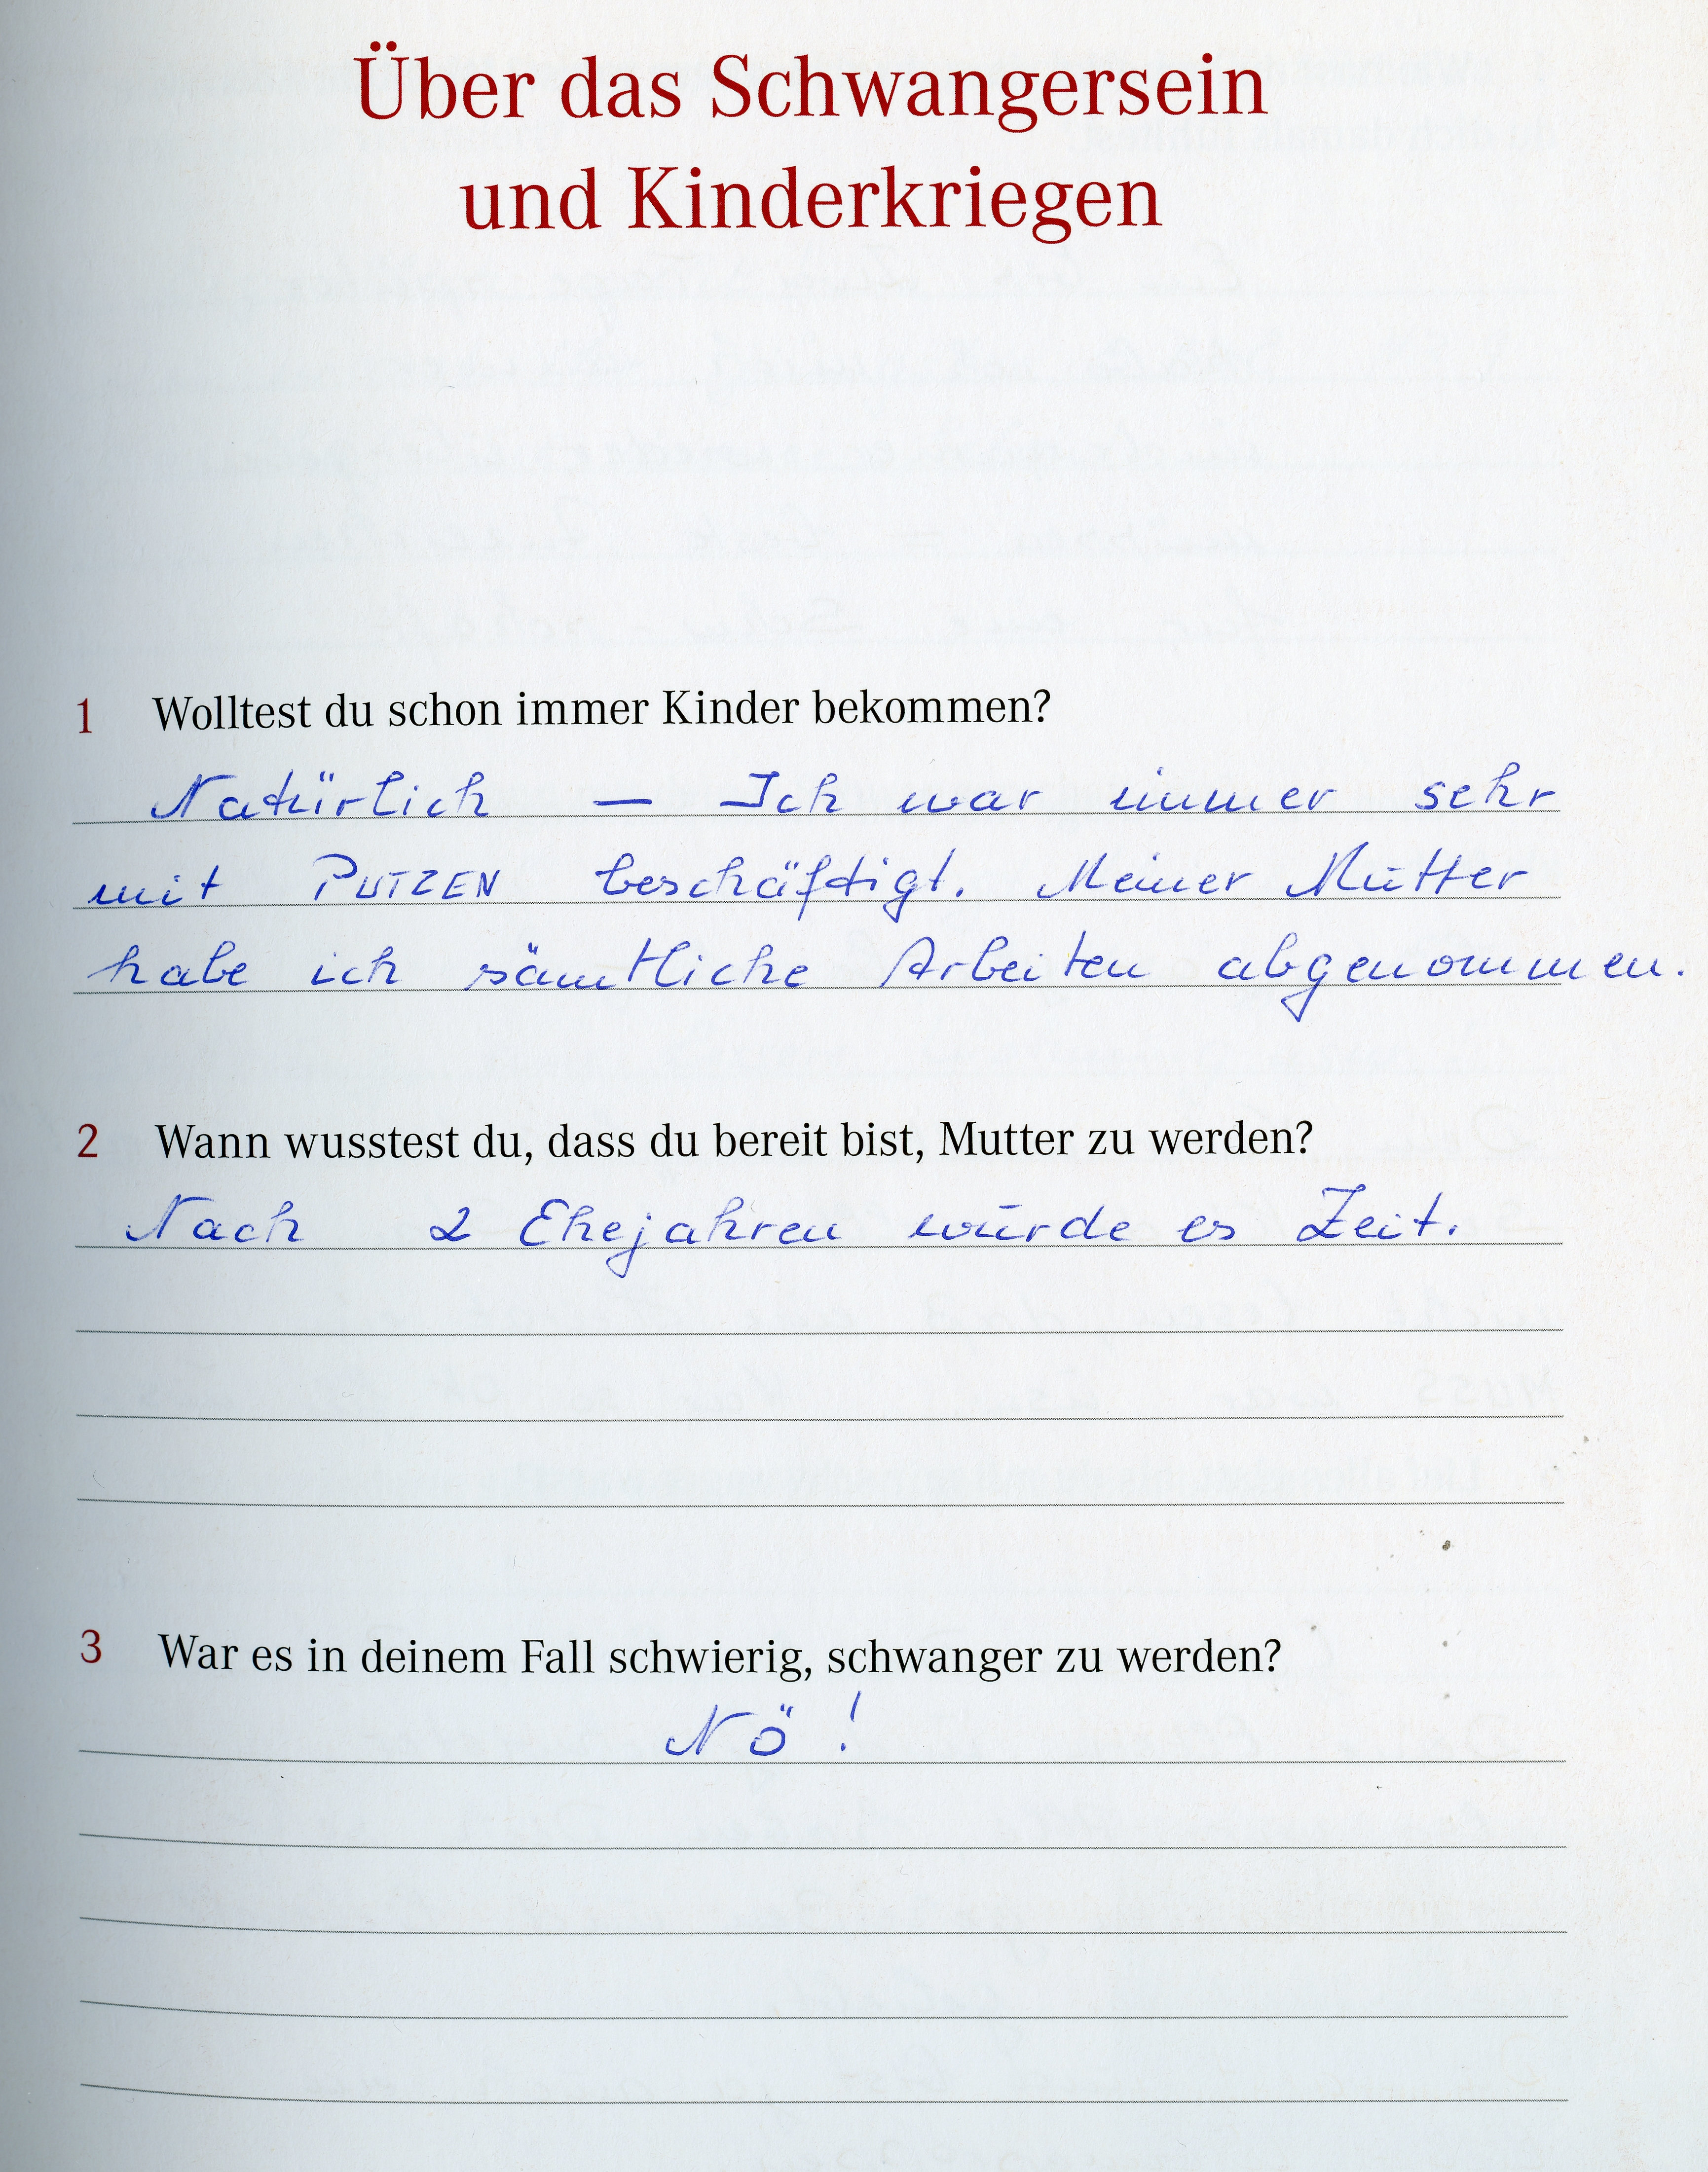 Über das Schwangersein
und Kinderkriegen
1 Wolltest du schon immer Kinder bekommen?
Natürlich – Ich war immer sehr
mit PUTZEN beschäftigt. Meiner Mutter
habe ich sämtliche Arbeiten abgenommen.
2 Wann wusstest du, dass du bereit bist, Mutter zu werden?
Nach 2 Ehejahren wurde es Zeit.
3 War es in deinem Fall schwierig, schwanger zu werden?
Nö!